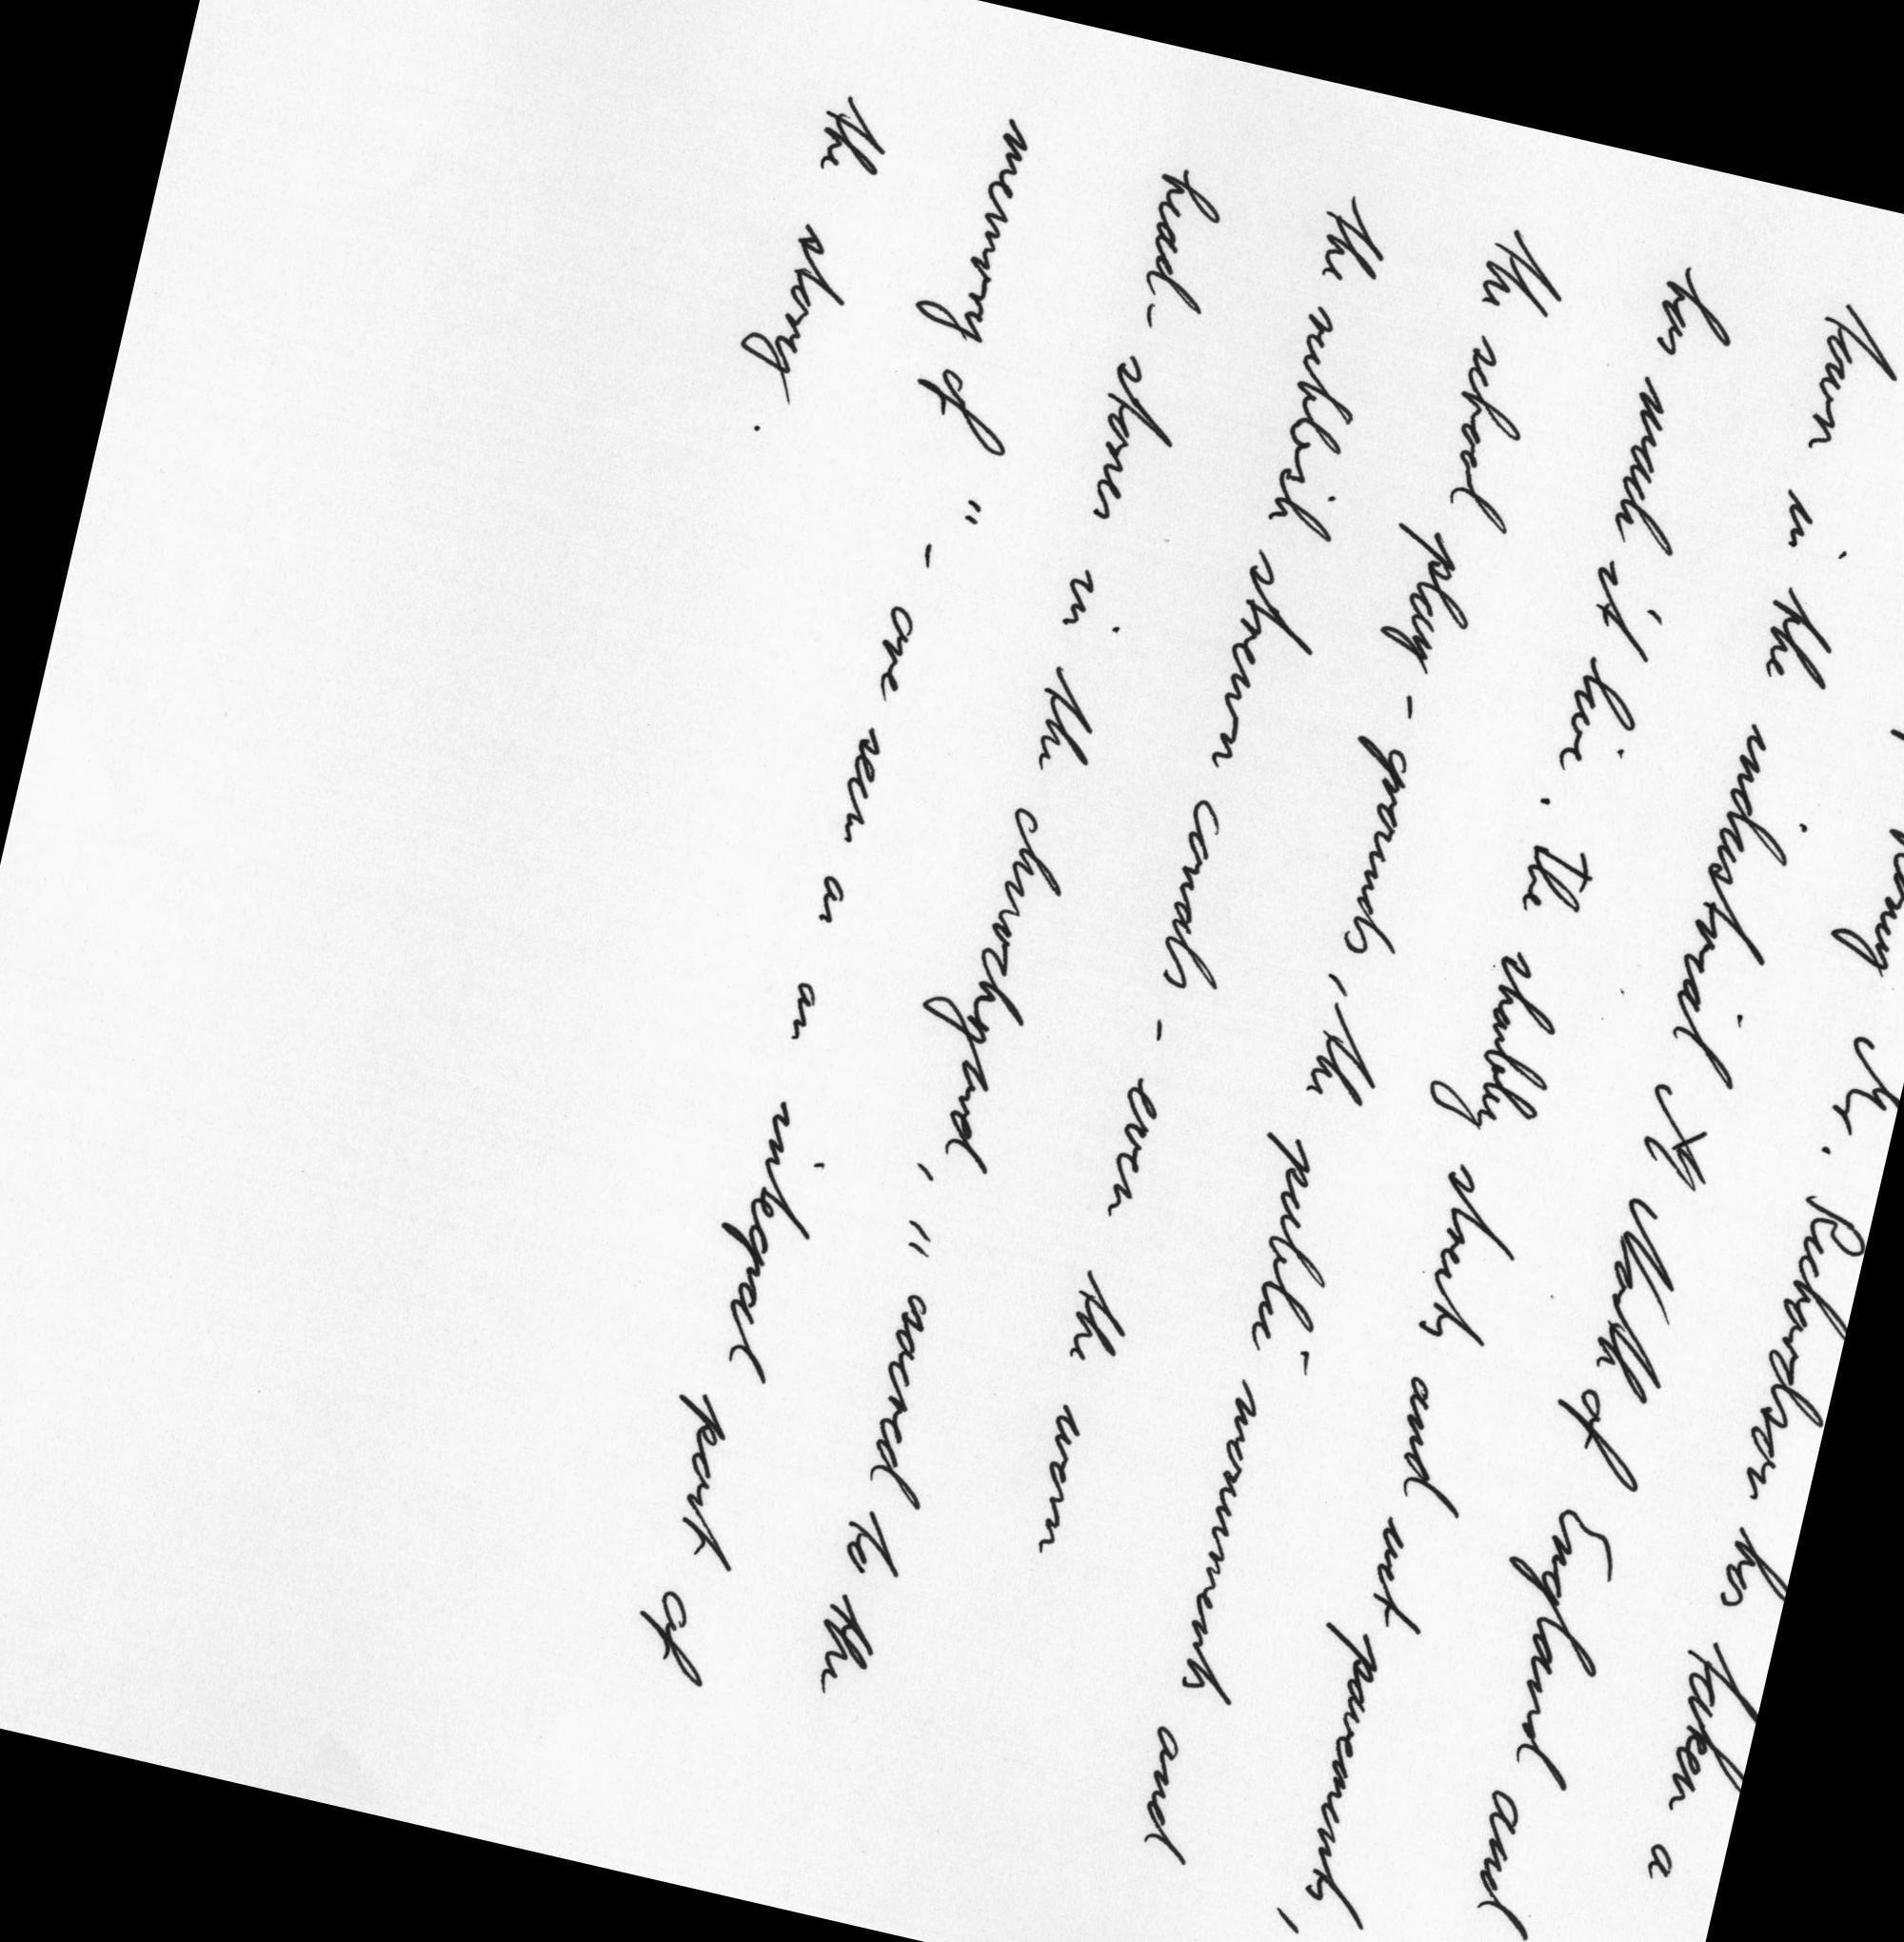 Mr. Richardson has taken a
town in the industrial North of England and
has made it live. The shabby streets and wet pavements,
the school play-grounds, the public monuments and
the rubbish strewn canals - even the worn
head-stones in the churchyard, "sacred to the
memory of" - are seen as an integral part of
the story.